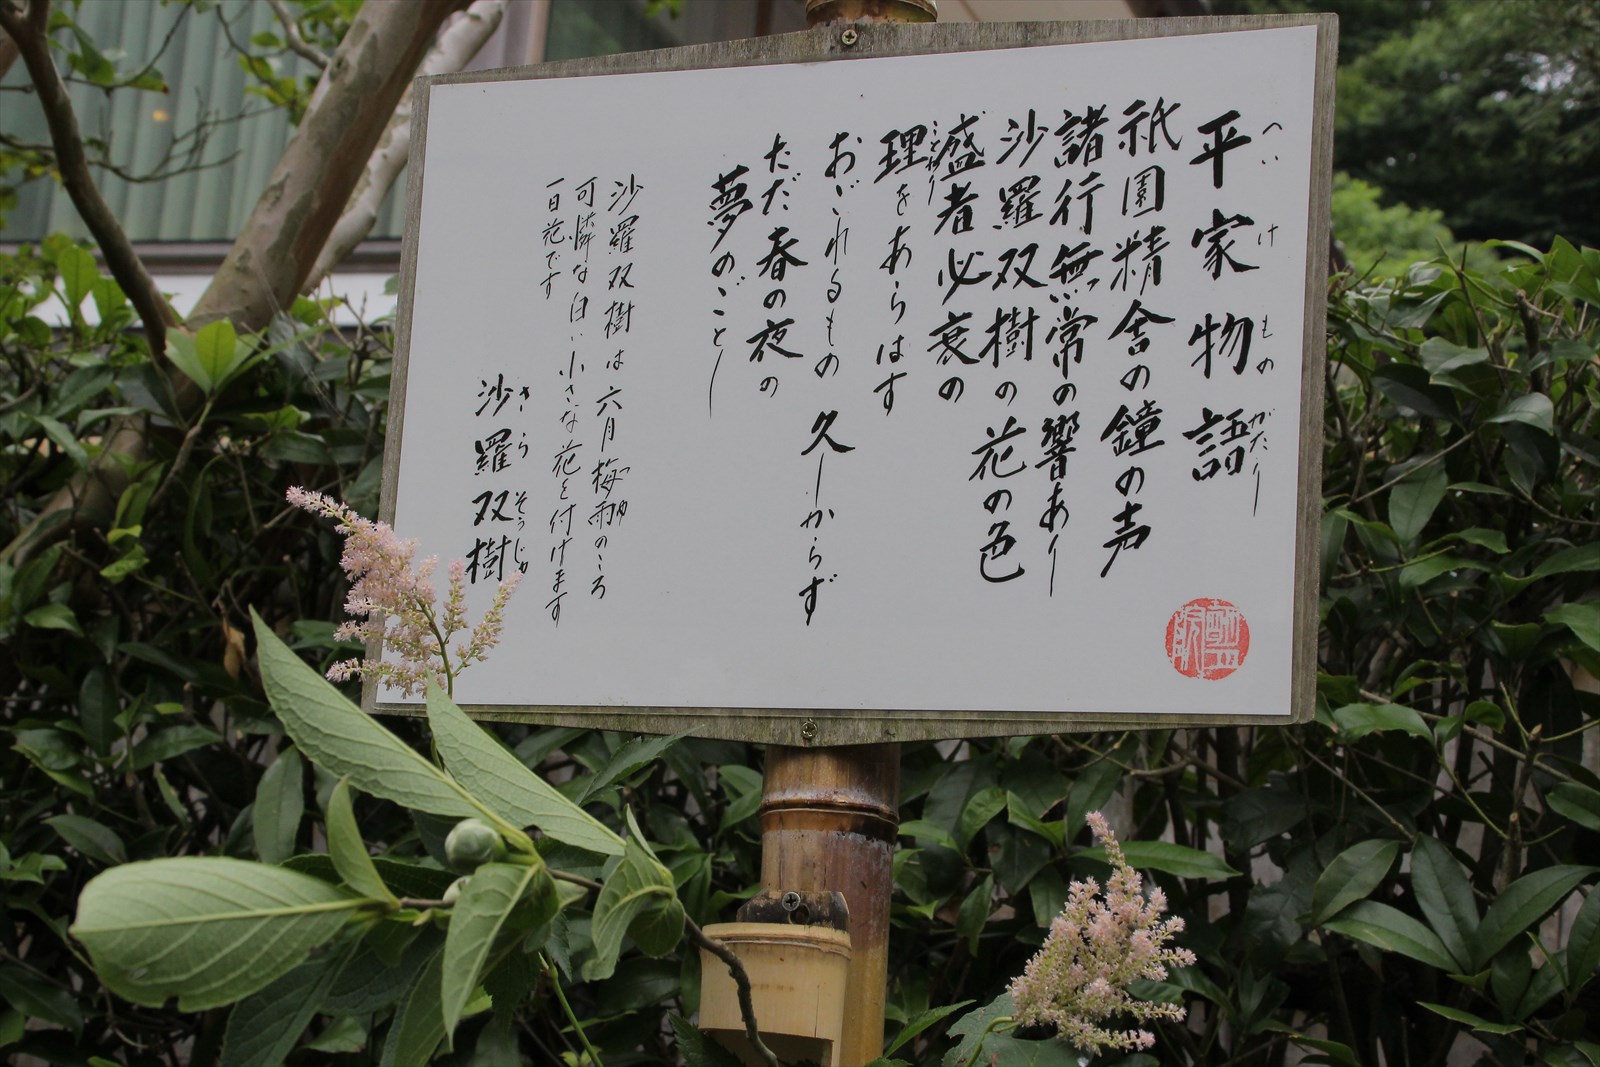 平家物語
へいけものがたり
祇園精舎の鐘の声
諸行無常の響あり
沙羅双樹の花の色
盛者必衰の
理をあらはす
ことわり
おごれるもの 久しからず
ただ春の夜の
夢のごとし
沙羅双樹は六月梅雨のころ
つゆ
可憐な白い小さな花を付けます
一日花です
沙羅双樹
さらそうじゅ